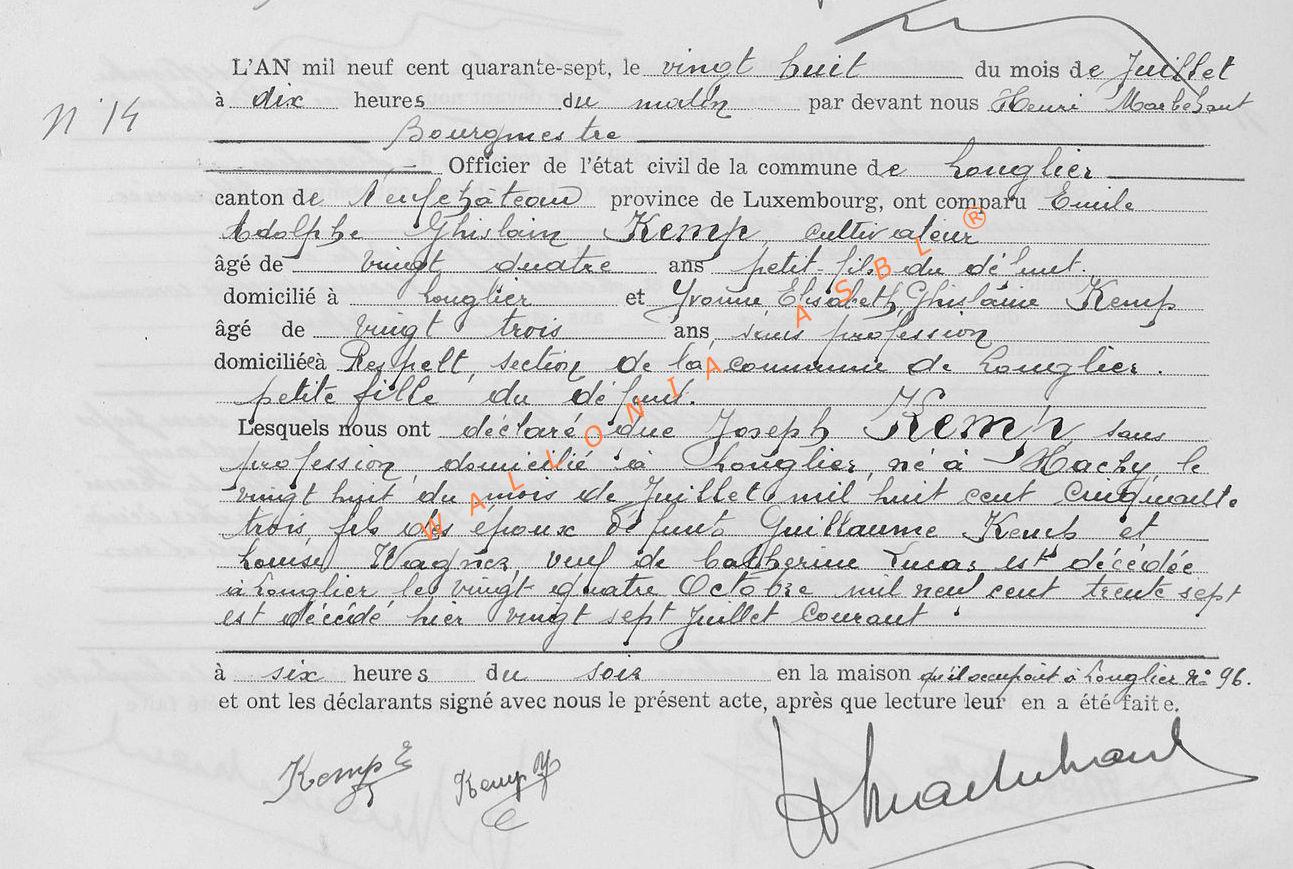 L'AN mil neuf cent quarante-sept, le vingt huit du mois de Juillet
N° 14
à dix heures du matin par devant nous Henri Marbehant
Bourgmestre
Officier de l'état civil de la commune de Longlier
canton de Neufchâteau province de Luxembourg, ont comparu Emile
Adolphe Ghislain Kemp, cultivateur
âgé de vingt quatre ans petit-fils du défunt.
domicilié à Longlier et Yvonne Elisabeth Ghislaine Kemp
âgé de vingt trois ans, sans profession
domiciliée à Respelt, section de la commune de Longlier.
petite fille du défunt.
Lesquels nous ont déclaré que Joseph Kemp sans
profession, domicilié à Longlier, né à Hachy le
vingt huit du mois de Juillet mil huit cent cinquante
trois fils des époux défunts Guillaume Kemp et
Louise Wagner, veuf de Catherine Lucas est décédée
à Longlier le vingt quatre Octobre mil neuf cent trente sept
est décédé hier vingt sept Juillet courant
à six heures du soir en la maison qu'il occupait à Longlier N° 96.
et ont les déclarants signé avec nous le présent acte, après que lecture leur en a été faite.
Kemp E
Kemp Y
WALLONIA ASBL ®